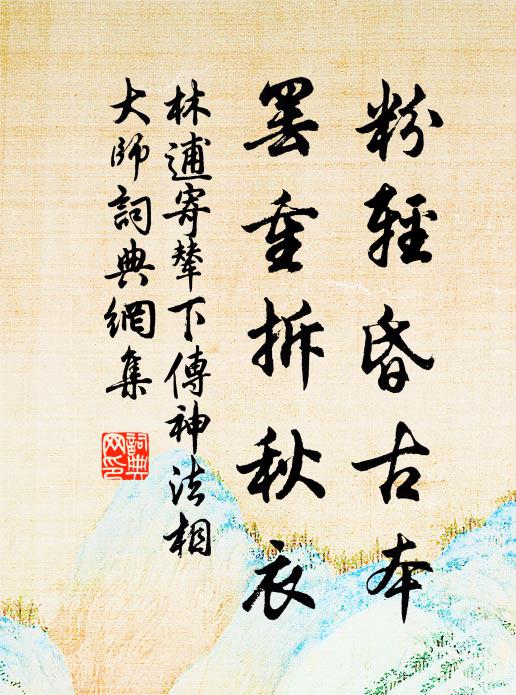 粉輕昏古本
罢重拆秋衣
林逋寄輦下傳神法相
大師詞典網集
詞典網印